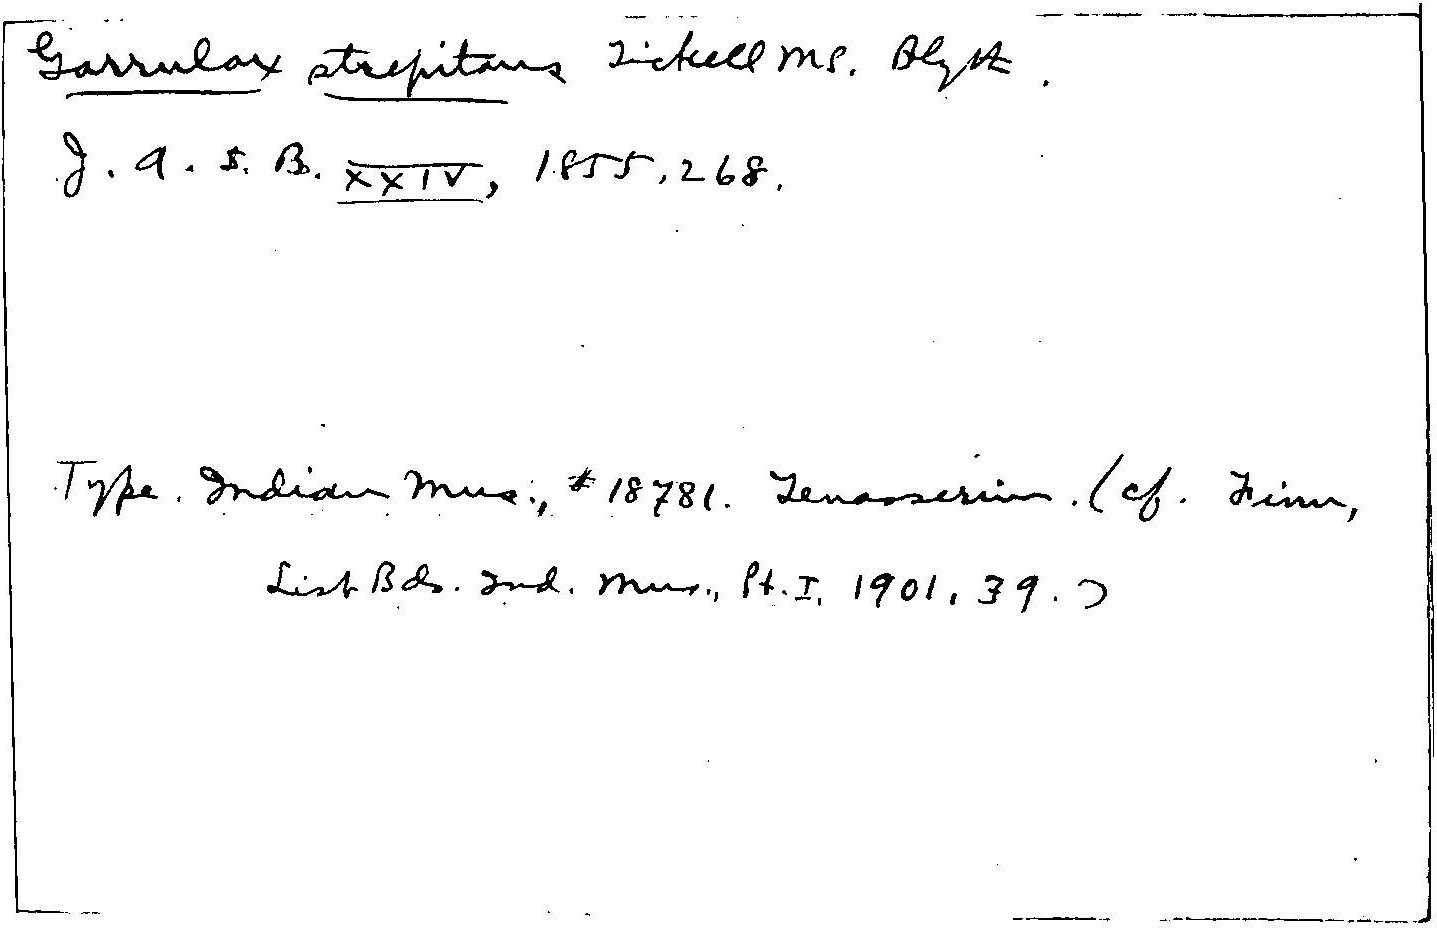 Garrulax strepitans Tickell MS. Blyth.
J. A. S. B. XXIV, 1855, 268.
Type. Indian Mus., # 18781. Tenasserim. (cf. Finn,
List Bds. Ind. Mus., Pt. I, 1901, 39.)